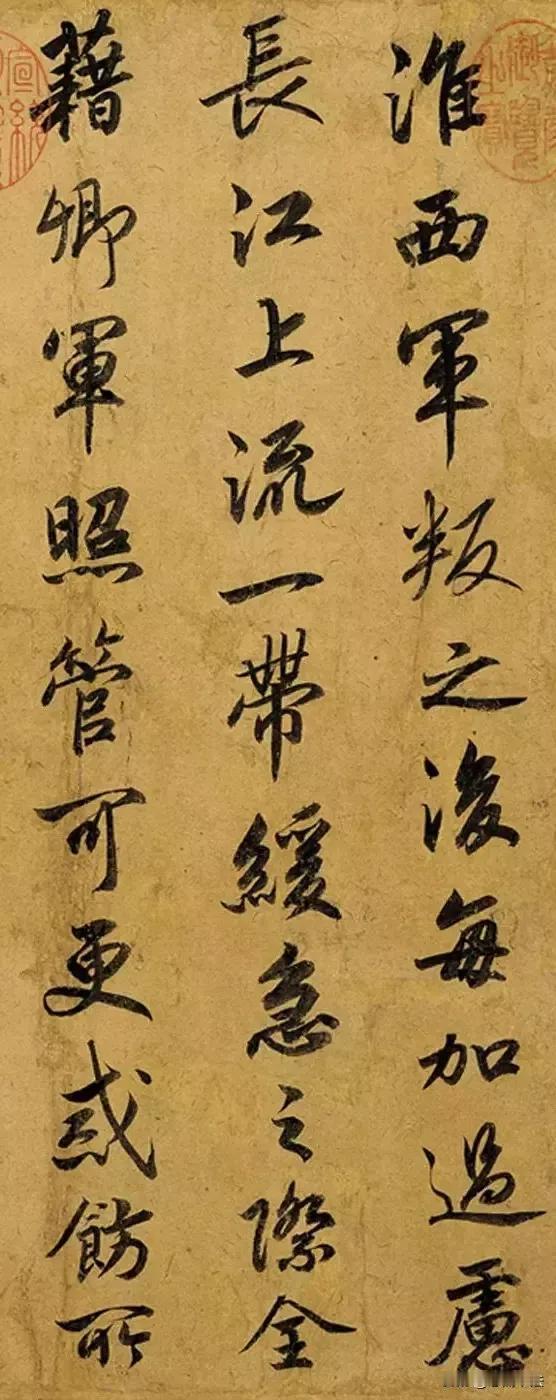 淮西軍叛之後每加過慮
長江上流一帶緩急之際全
藉卿軍照管可更戒飭所